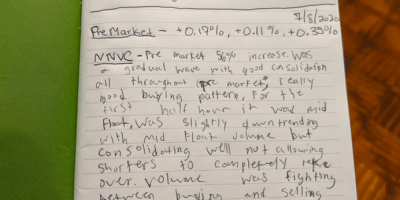 7/8/2020
PreMarket - +0.17%, +0.11%, +0.35%
NNVC - Pre market 56% increase. Was
a gradual wave with good consolidation
all throughout pre market, really
good buying pattern, For the
first half hour it was mid
Float, was slightly downtrending
with mid Float volume but
consolidating well not allowing
shorters to completely take
over. volume was fighting
between buying and selling